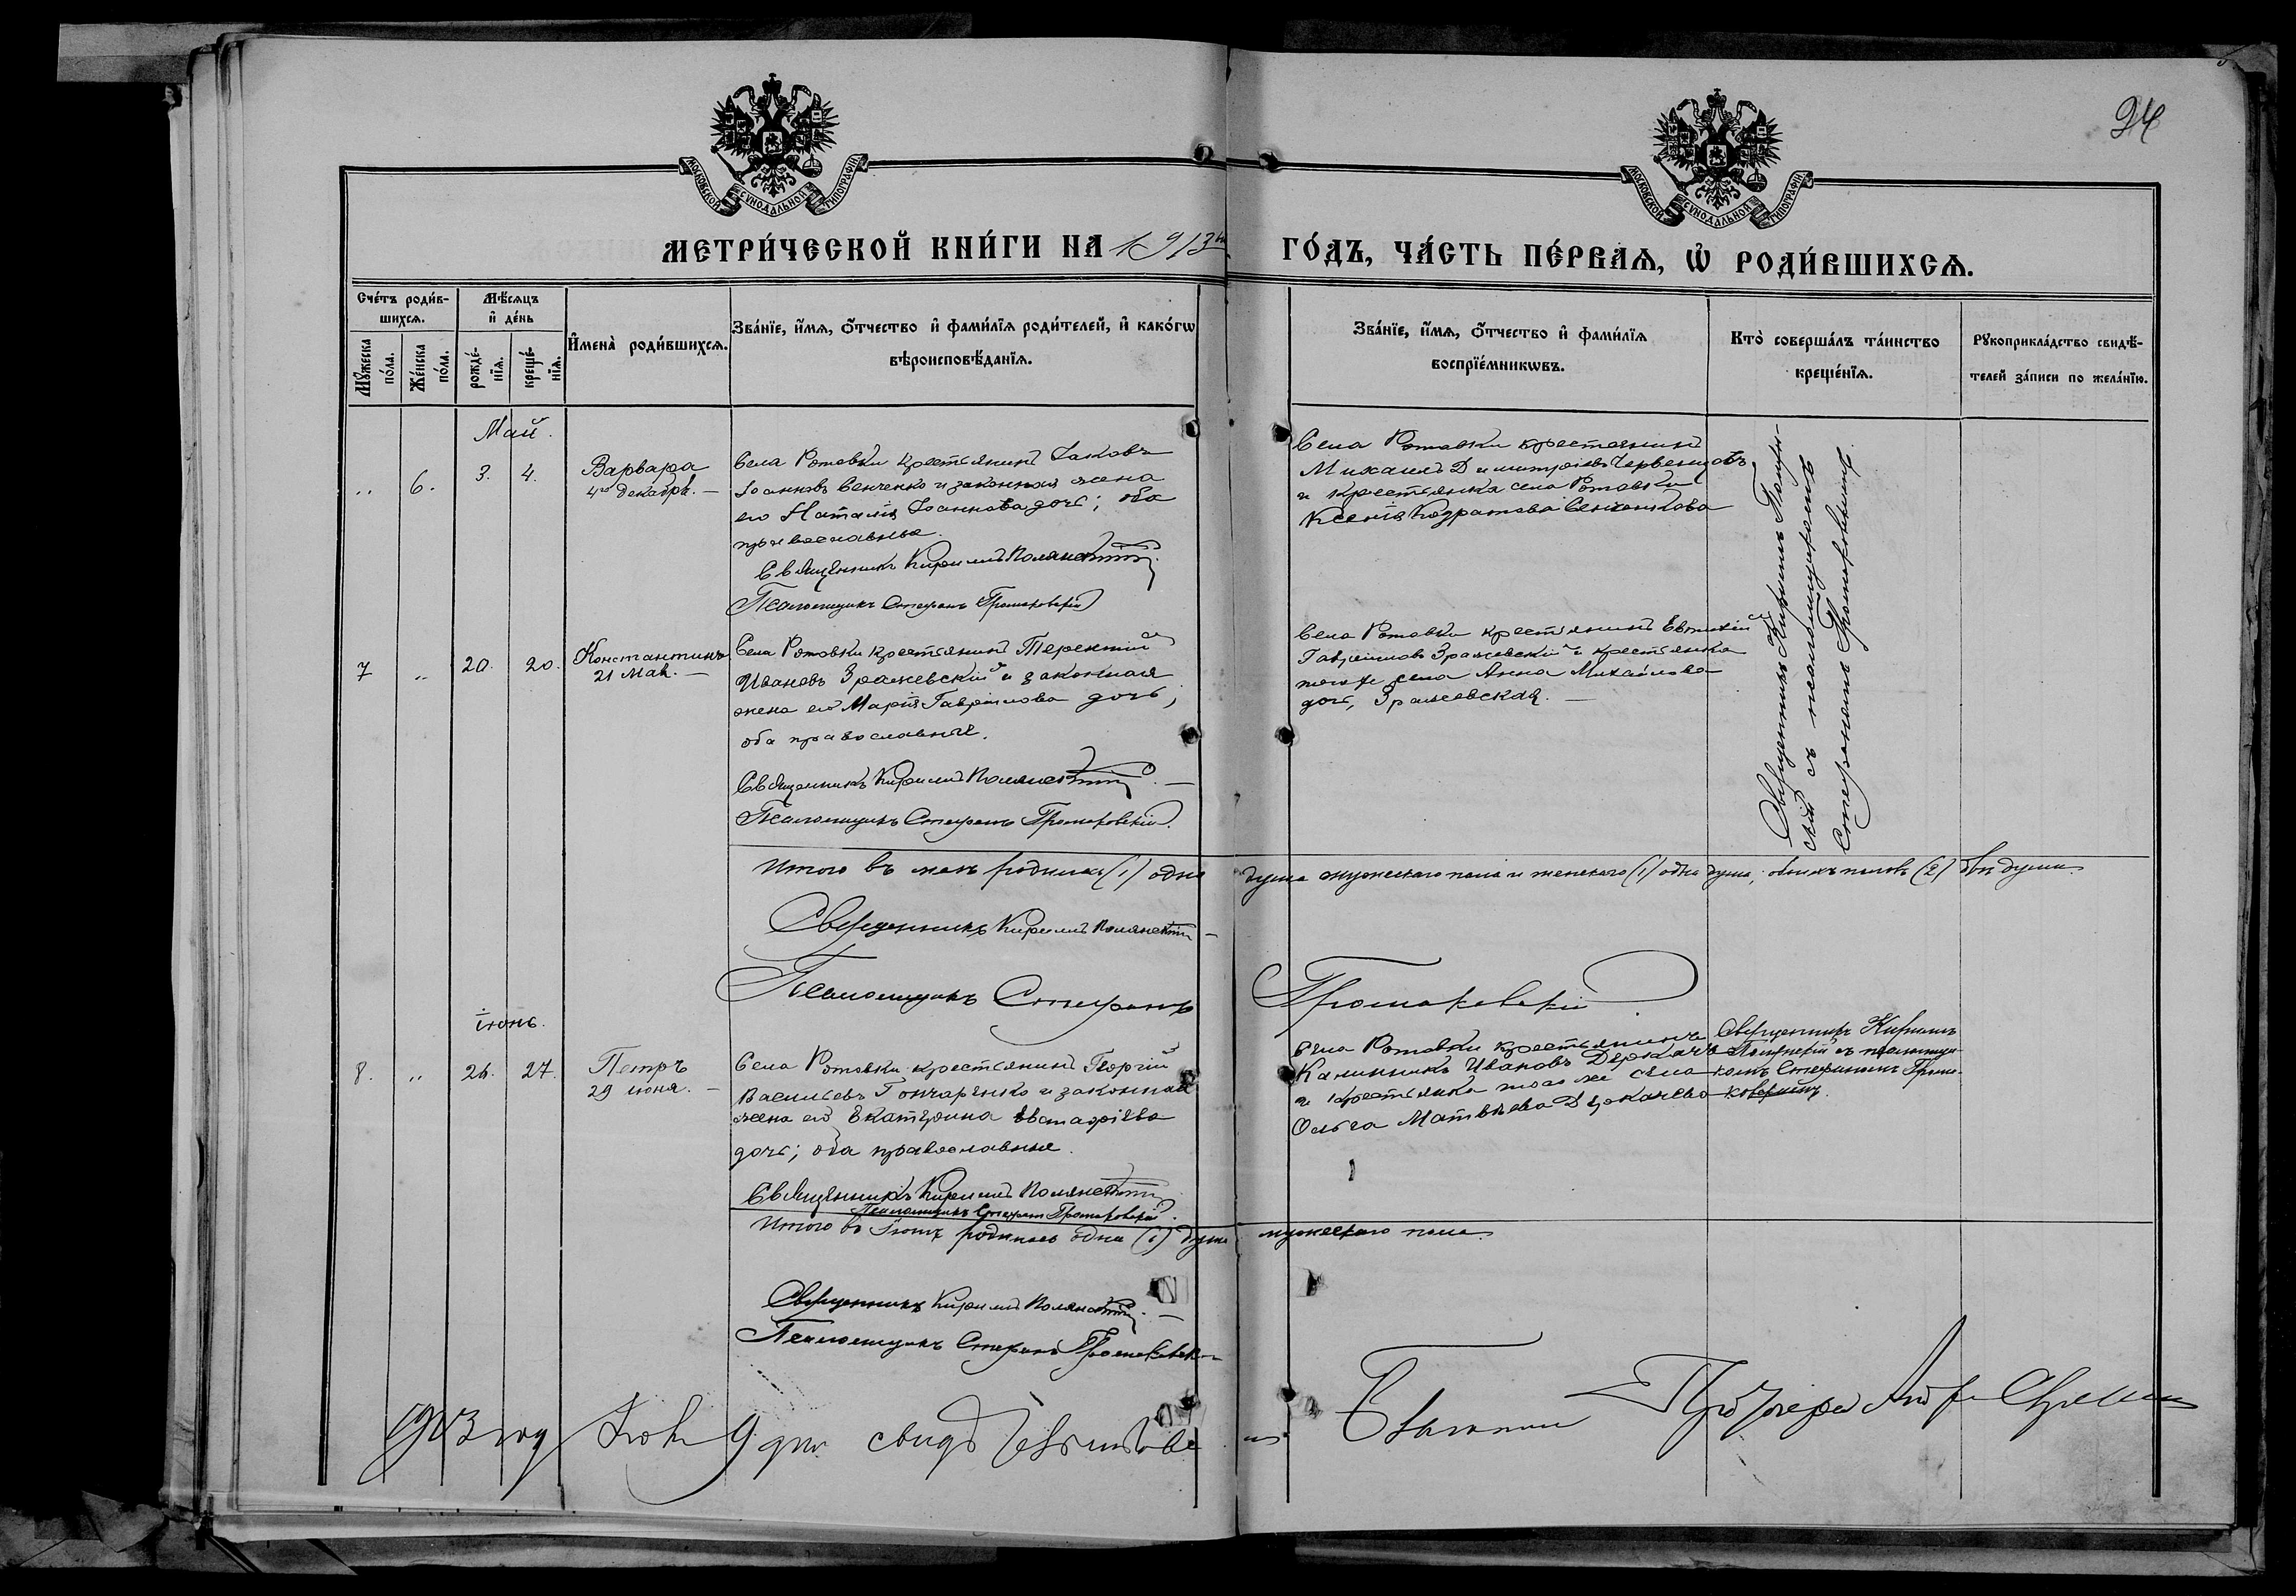 24
МОСКОВСКОЙ СѴНОДАЛЬНОЙ ТИПОГРАФІИ
МОСКОВСКОЙ СѴНОДАЛЬНОЙ ТИПОГРАФІИ
МЕТРИ́ЧЕСКОЙ КНИ́ГИ НА 1913й ГО́ДЪ, ЧА́СТЬ ПЕ́РВАѦ, Ѡ҆ РОДИ́ВШИХСѦ.
Сче́тъ роди́в-
шихсѧ.
Мꙋ́жеска
по́ла.
Же́нска
по́ла.
Мѣ́сѧцъ
и҆ де́нь
рожде́-
нїѧ.
креще́-
нїѧ.
И҆мена̀ роди́вшихсѧ.
Зва́нїе, и҆́мѧ, ѻ҆́тчество и҆ фами́лїѧ роди́телей, и҆ како́гѡ
вѣроисповѣ́данїѧ.
Зва́нїе, и҆́мѧ, ѻ҆́тчество и҆ фами́лїѧ
воспрїе́мникѡвъ.
Кто̀ соверша́лъ та́инство
креще́нїѧ.
Рꙋкоприкла́дство свидѣ́-
телей за́писи по жела́нїю.
Май.
„ 6. 3. 4.
Варвара
4го декабря. —
Села Ротовки крестьянинъ Іаковъ
Іоанновъ Сенченко и законная жена
его Наталія Іоаннова дочь; оба
православные.
Священникъ Кириллъ Полянскій
Псаломщикъ Стефанъ Громаковскій
Села Ротовки крестьянинъ
Михаилъ Димитріевъ Червенцовъ
и крестьянка села Ротовки
Ксенія Кодратова Сенченкова
Священникъ Кириллъ Полян-
скій съ псаломщикомъ
Стефаномъ Громаковскимъ.
7 „ 20. 20.
Константинъ
21 Мая. —
Села Ротовки крестьянинъ Терентій
Ивановъ Зражевскій и законная
жена его Марія Гавріилова дочь;
оба православные.
Священникъ Кириллъ Полянскій. —
Псаломщикъ Стефанъ Громаковскій.
Села Ротовки крестьянинъ Евтихій
Гавріиловъ Зражевскій и крестьянка
того же села Анна Михайлова
дочь, Зражевская. —
Итого въ маѣ родилась (1) одна душа мужескаго пола и женскаго (1) одна душа, обоихъ половъ (2) двѣ души.
Священникъ Кириллъ Полянскій —
Псаломщикъ Стефанъ Громаковскій
Іюнь.
8. „ 26. 27.
Петръ
29 іюня. —
Села Ротовки крестьянинъ Георгій
Васильевъ Гончаренко и законная
жена его Екатерина Евстафіева
дочь; оба православные.
Священникъ Кириллъ Полянскій
Псаломщикъ Стефанъ Громаковскій.
Села Ротовки крестьянинъ
Калинникъ Ивановъ Деркачъ
и крестьянка того же села
Ольга Матвѣева Деркачева
Священникъ Кириллъ
Полянскій съ псаломщи-
комъ Стефаномъ Грома-
ковскимъ.
Итого въ Іюнѣ родилась одна (1) душа мужескаго пола.
Священникъ Кириллъ Полянскій. —
Псаломщикъ Стефанъ Громаковскій
1913 год